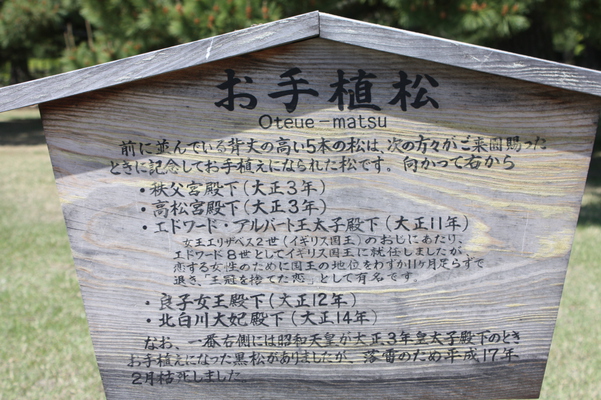 お手植松
Oteue-matsu
前に並んでいる背丈の高い5本の松は、次の方々がご来園賜った
ときに記念してお手植えになられた松です。向かって右から
・秩父宮殿下(大正3年)
・高松宮殿下(大正3年)
・エドワード・アルバート王太子殿下(大正11年)
女王エリザベス2世(イギリス国王)のおじにあたり、
エドワード8世としてイギリス国王に就任しましたが、
恋する女性のために国王の地位をわずか11ヶ月足らずで
退き、「王冠を捨てた恋」として有名です。
・良子女王殿下(大正12年)
・北白川大妃殿下(大正14年)
なお、一番右側には昭和天皇が大正3年皇太子殿下のとき
お手植えになった黒松がありましたが、落雷のため平成17年
2月枯死しました